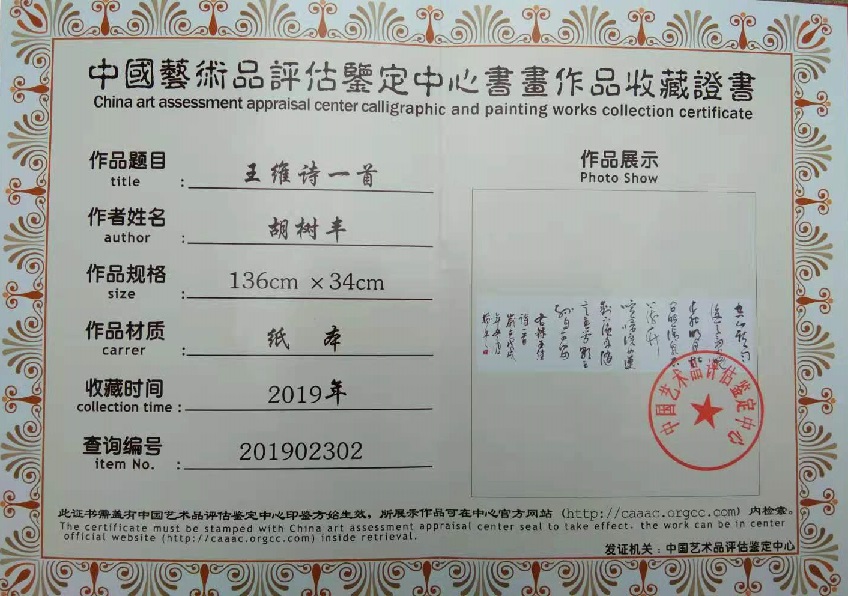 中國藝術品評估鑒定中心書畫作品收藏證書
China art assessment appraisal center calligraphic and painting works collection certificate
作品题目
title : 王维诗一首
作者姓名
author : 胡树丰
作品规格
size : 136cm ×34cm
作品材质
carrer : 纸 本
收藏时间
collection time : 2019年
查询编号
item No. : 201902302
作品展示
Photo Show
中国艺术品评估鉴定中心
此证书需盖有中国艺术品评估鉴定中心印鉴方始生效，所展示作品可在中心官方网站（http://caaac.orgcc.com）内检索。
The certificate must be stamped with China art assessment appraisal center seal to take effect. the work can be in center
official website (http://caaac.orgcc.com) inside retrieval.
发证机关：中国艺术品评估鉴定中心